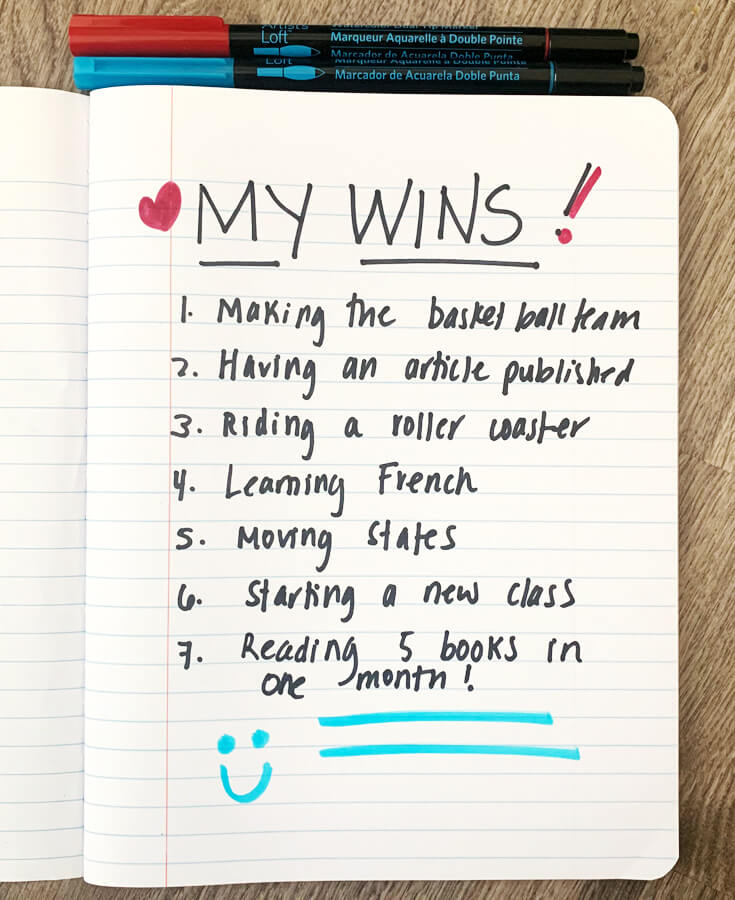 Artist's
Loft
Watercolor Dual Tip Marker
Marqueur Aquarelle à Double Pointe
Marcador de Acuarela Doble Punta
Loft
Marqueur Aquarelle à Double Pointe
Marcador de Acuarela Doble Punta
MY WINS!
1. Making the basket ball team
2. Having an article published
3. Riding a roller coaster
4. Learning French
5. Moving States
6. Starting a new class
7. Reading 5 books in
one month!